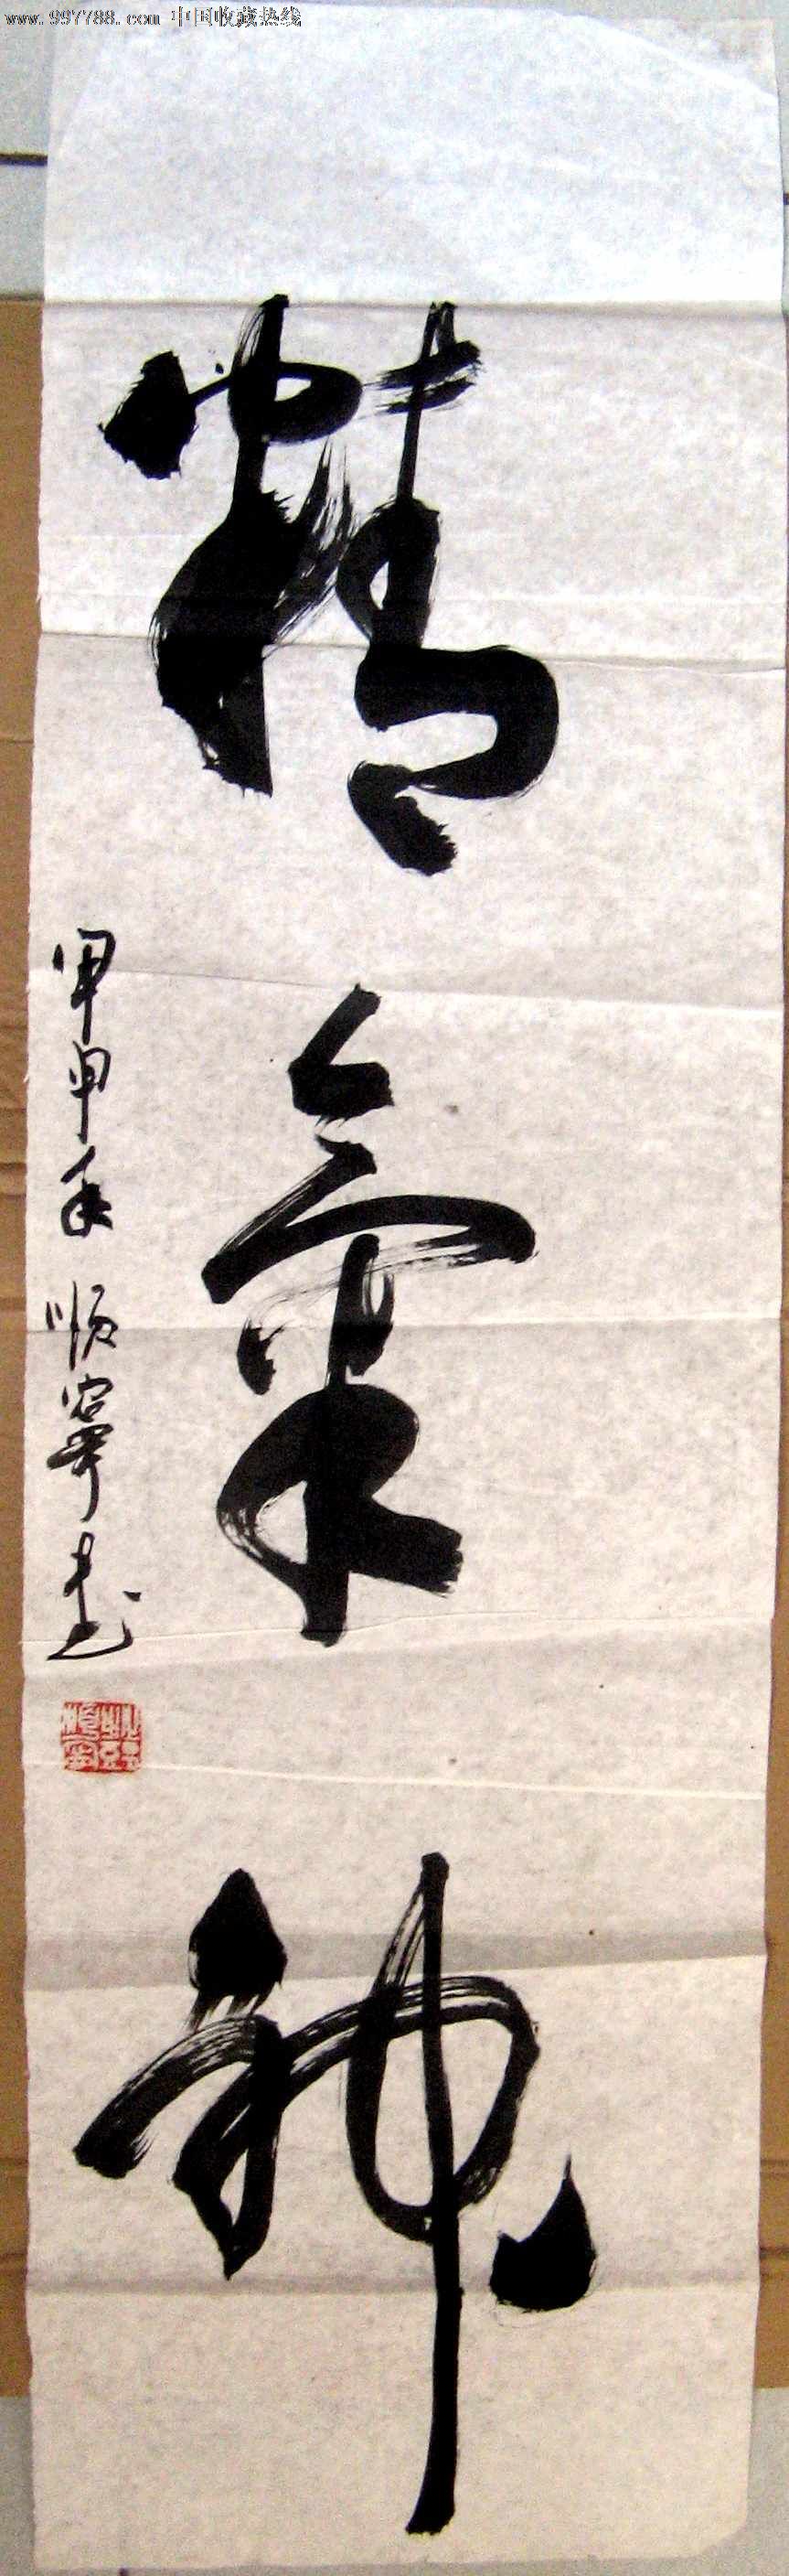 www.997788.com 中国收藏热线
精氣神
甲申年 顺寧书